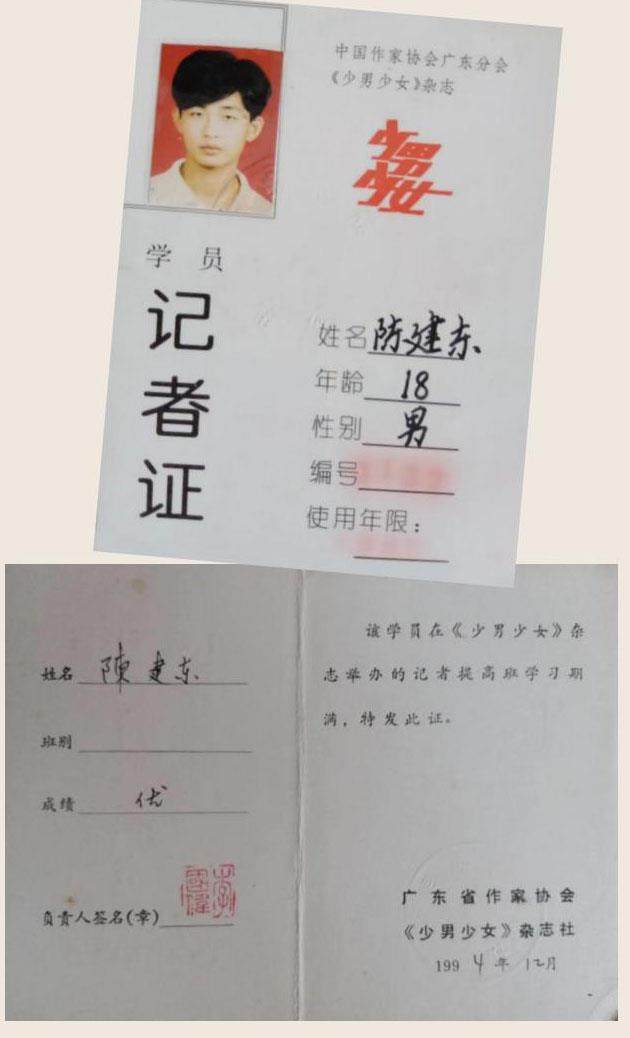 中国作家协会广东分会
《少男少女》杂志
少男
少女
学 员
记
者
证
姓名 陈建东
年龄 18
性别 男
编号
使用年限：
姓名 陳建东
班别
成绩 优
负责人签名(章)
该学员在《少男少女》杂
志举办的记者提高班学习期
满，特发此证。
广东省作家协会
《少男少女》杂志社
1994年12月